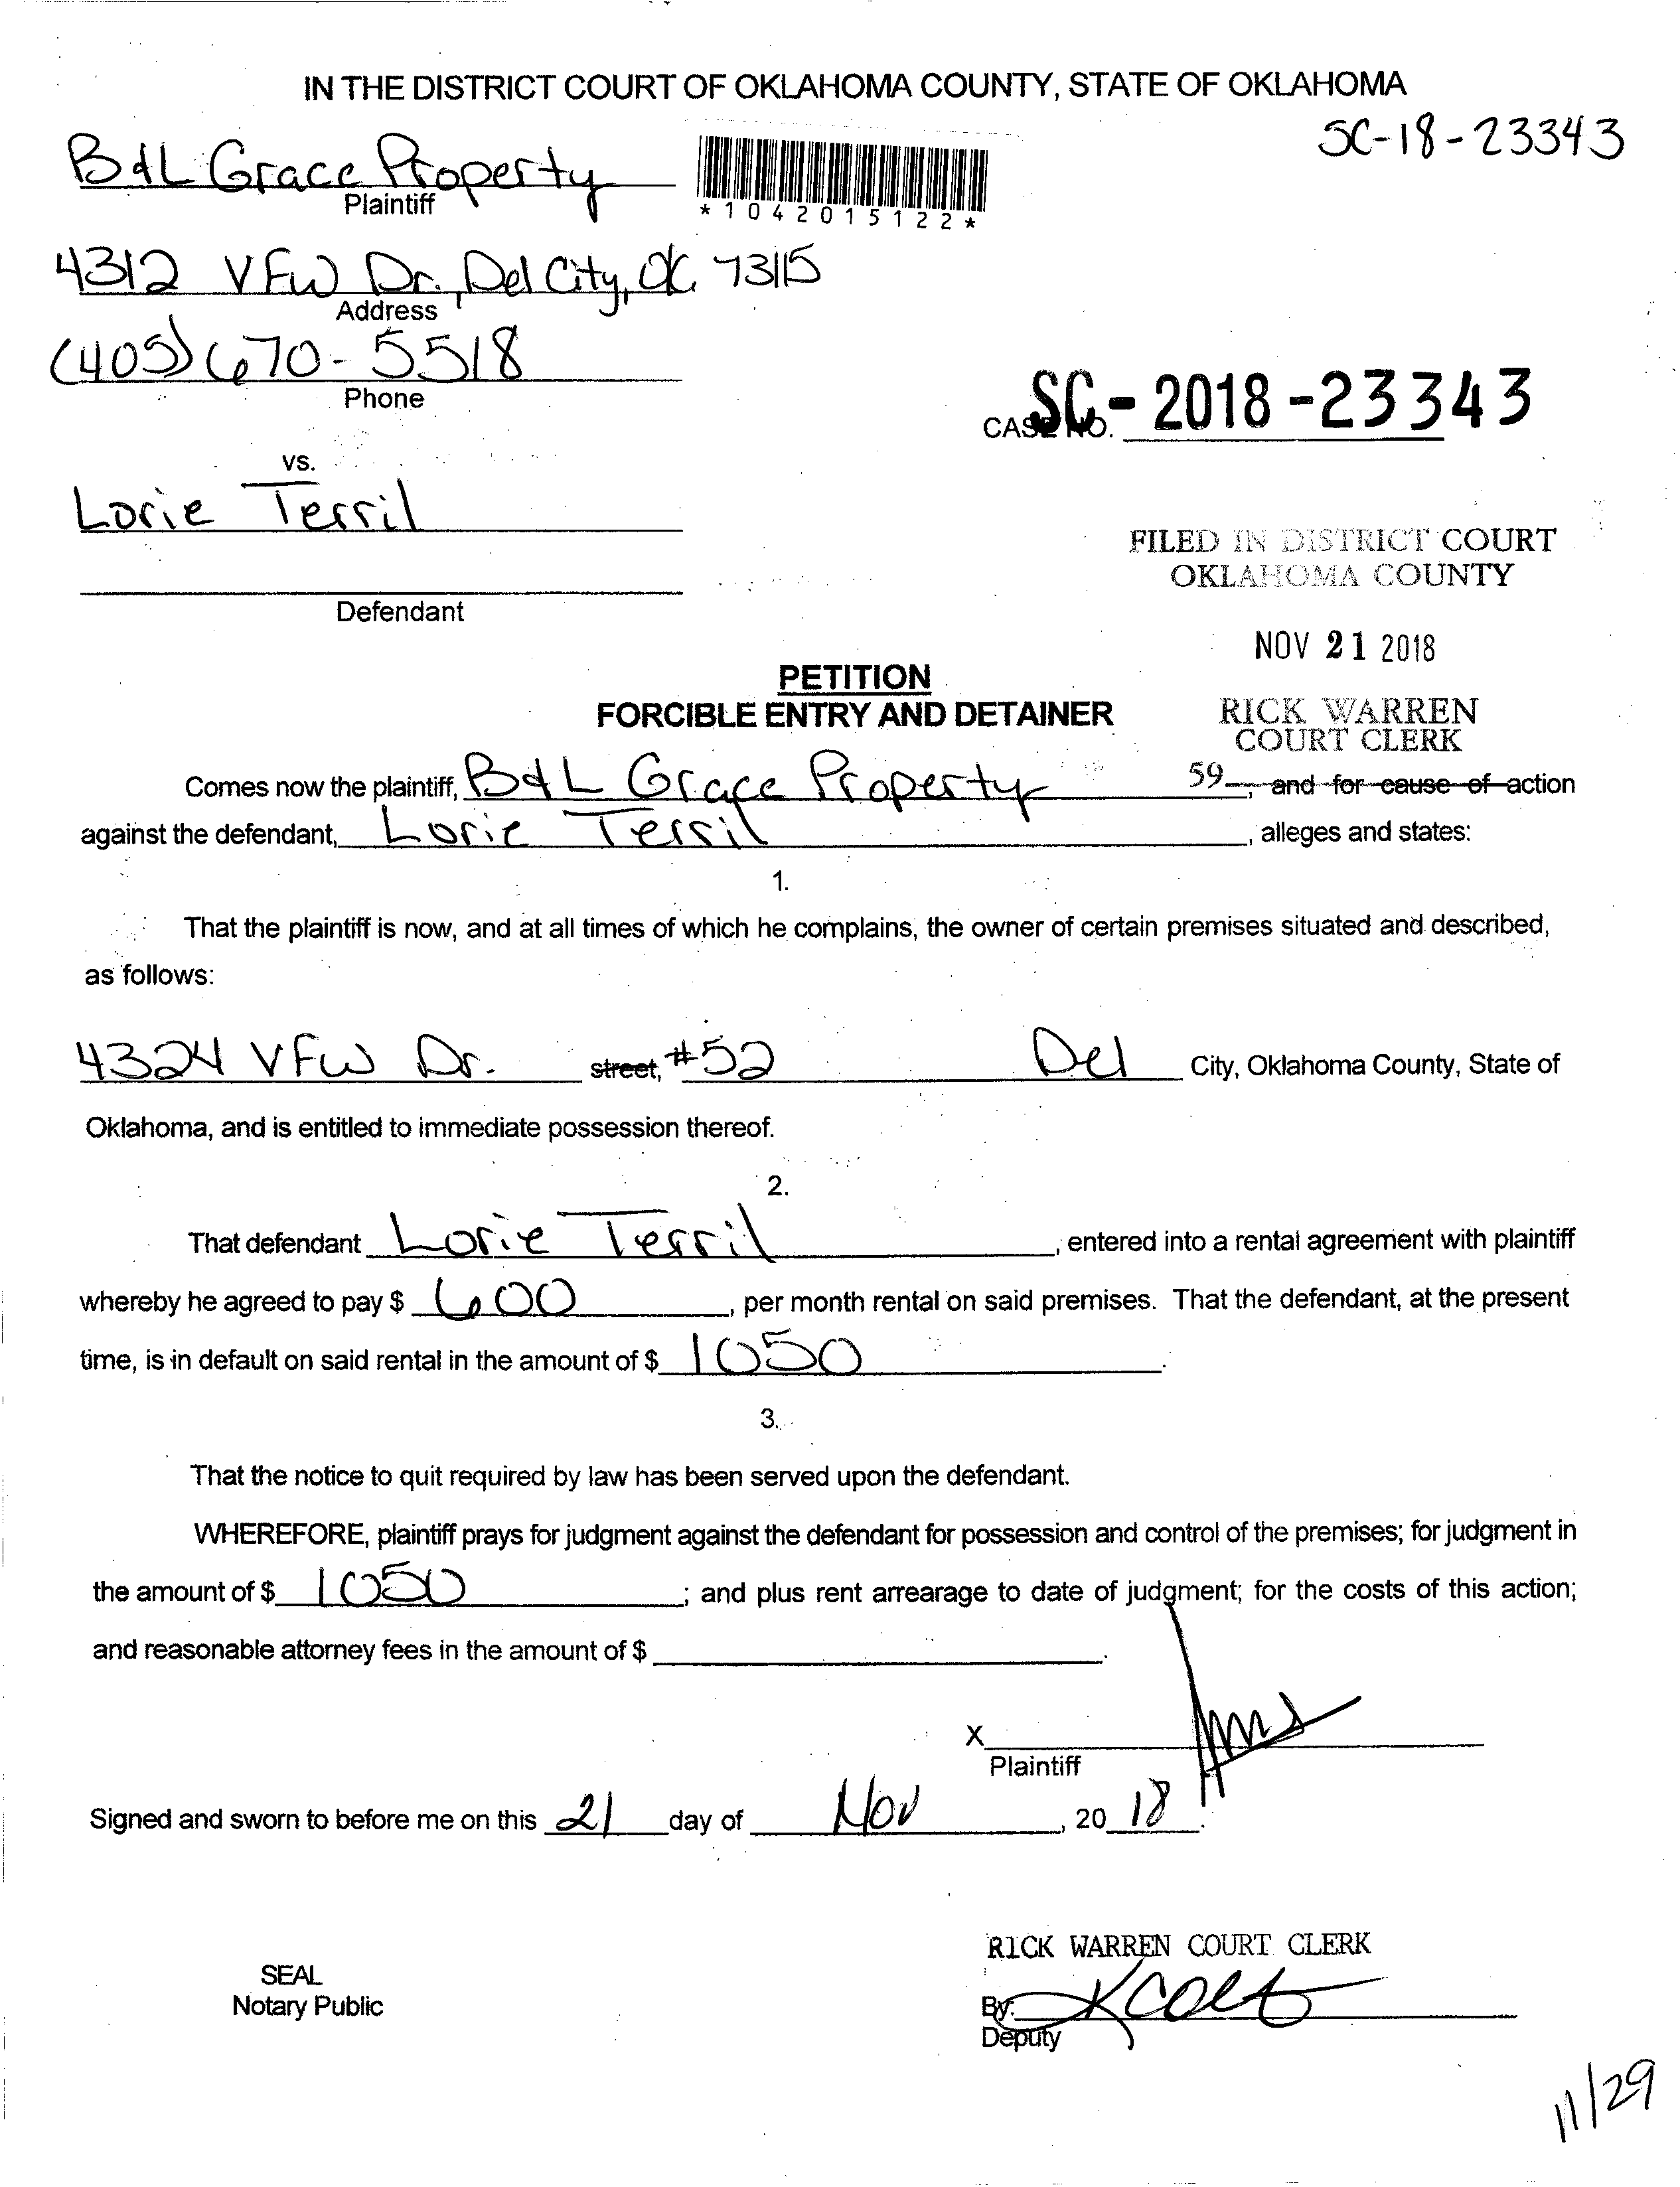 IN THE DISTRICT COURT OF OKLAHOMA COUNTY, STATE OF OKLAHOMA
SC-18-23343
B&L Grace Property
Plaintiff
*1042015122*
4312 VFW Dr., Del City, OK 73115
Address
(405) 670-5518
Phone
CASE NO. SC-2018-23343
vs.
Lorie Terril
Defendant
FILED IN DISTRICT COURT
OKLAHOMA COUNTY
NOV 21 2018
RICK WARREN
COURT CLERK
59
PETITION
FORCIBLE ENTRY AND DETAINER
Comes now the plaintiff, B&L Grace Property, and for cause of action
against the defendant, Lorie Terril, alleges and states:
1.
That the plaintiff is now, and at all times of which he complains, the owner of certain premises situated and described,
as follows:
4324 VFW Dr. street, #52 Del City, Oklahoma County, State of
Oklahoma, and is entitled to immediate possession thereof.
2.
That defendant Lorie Terril, entered into a rental agreement with plaintiff
whereby he agreed to pay $ 600, per month rental on said premises. That the defendant, at the present
time, is in default on said rental in the amount of $ 1050.
3.
That the notice to quit required by law has been served upon the defendant.
WHEREFORE, plaintiff prays for judgment against the defendant for possession and control of the premises; for judgment in
the amount of $ 1050; and plus rent arrearage to date of judgment; for the costs of this action;
and reasonable attorney fees in the amount of $ .
X
Plaintiff
Signed and sworn to before me on this 21 day of Nov, 20 18.
RICK WARREN COURT CLERK
SEAL
Notary Public
By:
Deputy
11/29